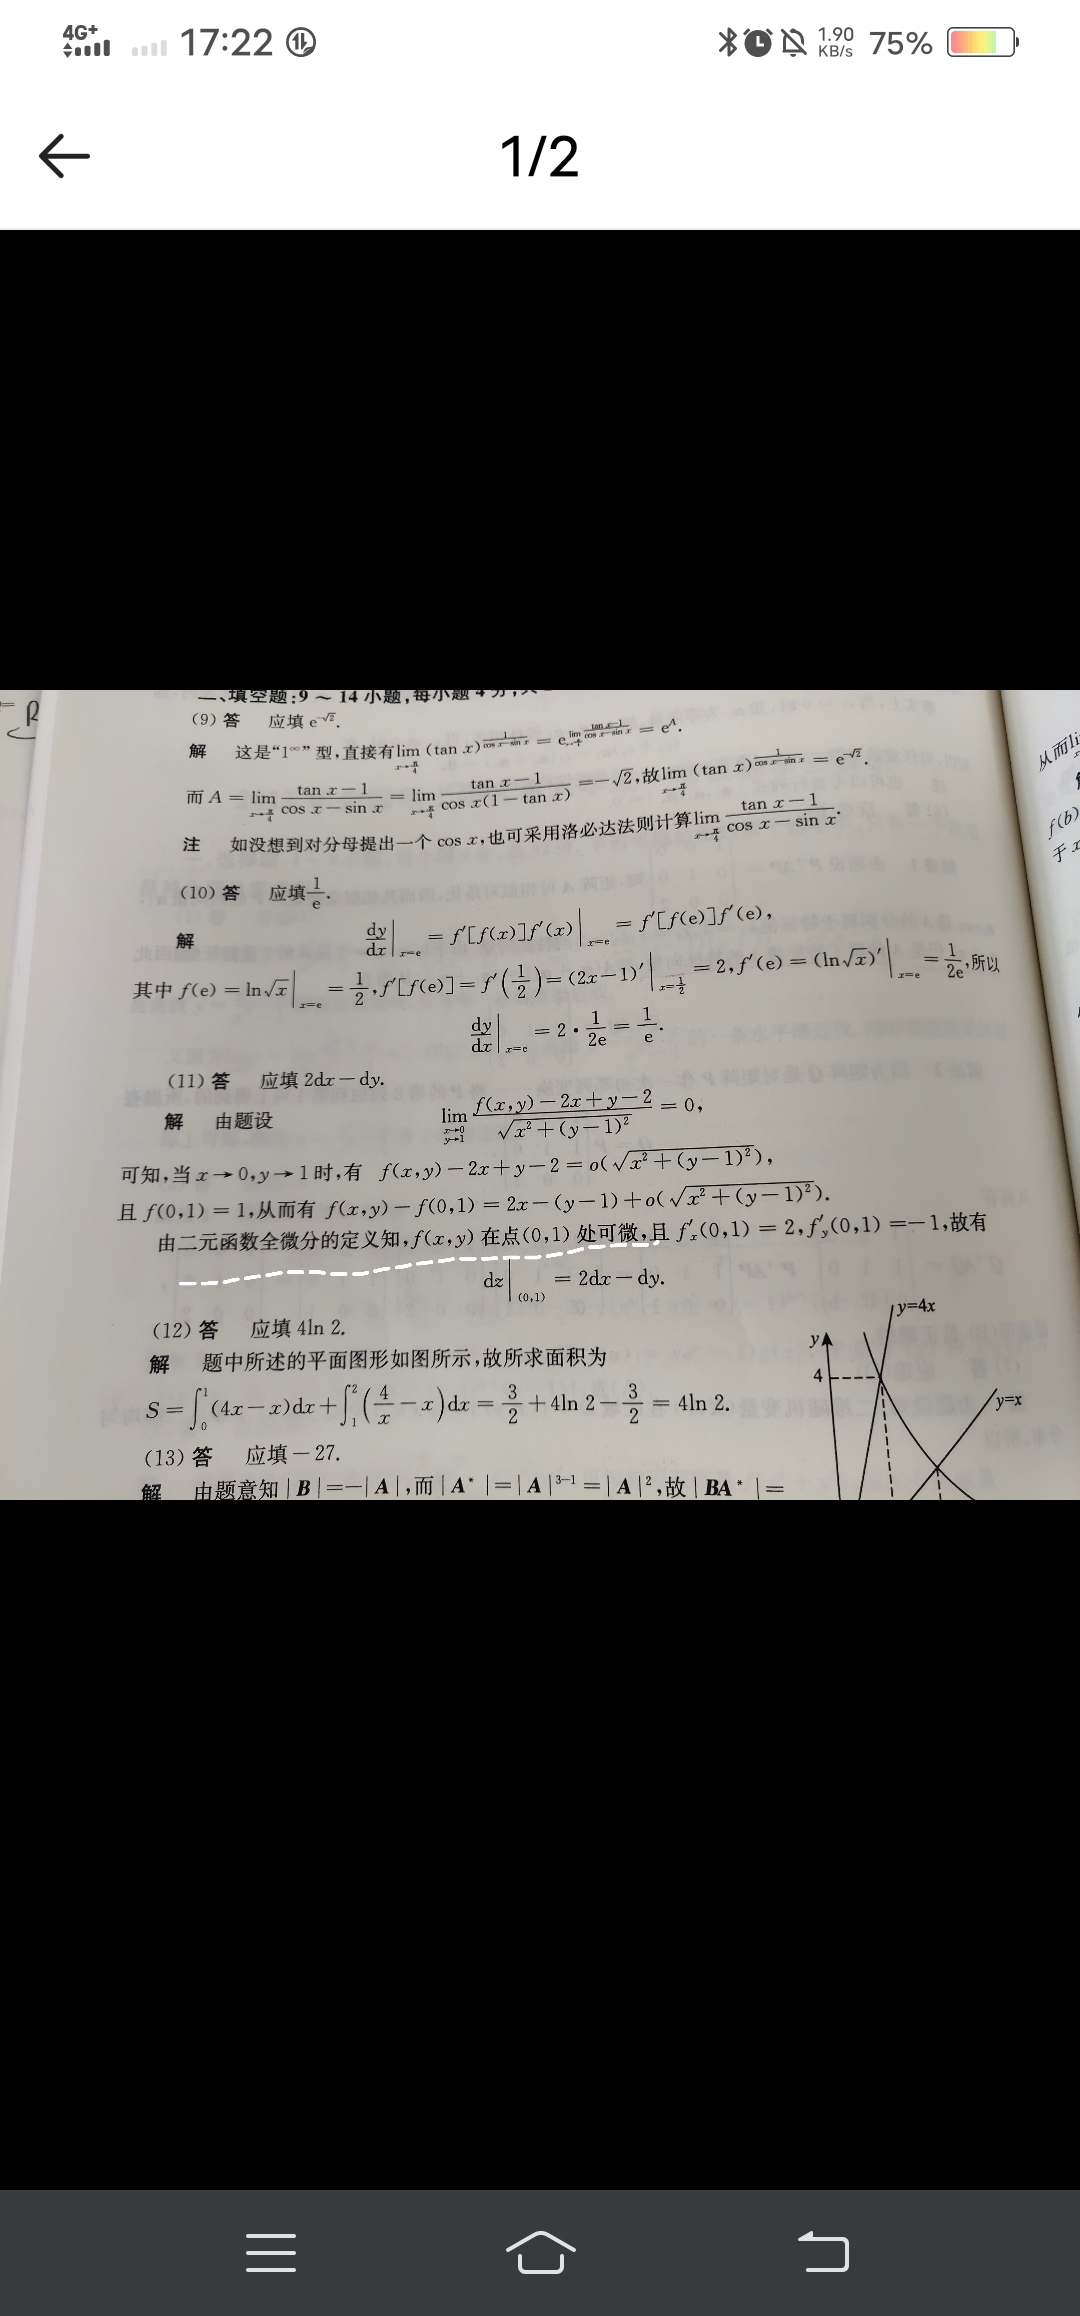 4G+ 17:22 1.90 KB/s 75%
1/2
二、填空题:9 ～ 14 小题,每小题 4 分,
(9) 答 应填 e^{-√2}.
解 这是“1^∞”型,直接有 lim_{x→π/4} (tan x)^{1/(cos x − sin x)} = e^{lim_{x→π/4} (tan x−1)/(cos x−sin x)} = e^A.
而 A = lim_{x→π/4} (tan x − 1)/(cos x − sin x) = lim_{x→π/4} (tan x − 1)/(cos x(1 − tan x)) = −√2,故 lim_{x→π/4} (tan x)^{1/(cos x − sin x)} = e^{-√2}.
注 如没想到对分母提出一个 cos x,也可采用洛必达法则计算 lim_{x→π/4} (tan x − 1)/(cos x − sin x).
(10) 答 应填 1/e.
解 dy/dx|_{x=e} = f′[f(x)]f′(x)|_{x=e} = f′[f(e)]f′(e),
其中 f(e) = ln√x|_{x=e} = 1/2, f′[f(e)] = f′(1/2) = (2x−1)′|_{x=1/2} = 2, f′(e) = (ln√x)′|_{x=e} = 1/2e,所以
dy/dx|_{x=e} = 2 · 1/2e = 1/e.
(11) 答 应填 2dx − dy.
解 由题设 lim_{x→0 y→1} (f(x,y) − 2x + y − 2)/√(x² + (y−1)²) = 0,
可知,当 x → 0,y → 1 时,有 f(x,y) − 2x + y − 2 = o(√(x² + (y−1)²)),
且 f(0,1) = 1,从而有 f(x,y) − f(0,1) = 2x − (y−1) + o(√(x² + (y−1)²)).
由二元函数全微分的定义知,f(x,y) 在点(0,1) 处可微,且 f′ₓ(0,1) = 2,f′_y(0,1) = −1,故有
dz|_{(0,1)} = 2dx − dy.
(12) 答 应填 4ln 2.
解 题中所述的平面图形如图所示,故所求面积为
S = ∫₀¹ (4x − x)dx + ∫₁² (4/x − x)dx = 3/2 + 4ln 2 − 3/2 = 4ln 2.
(13) 答 应填 − 27.
解 由题意知 | B | = −| A |,而 | A* | = | A |^{3−1} = | A |²,故 | BA* | =
y=4x
y
4
y=x
从而
f(b)
于